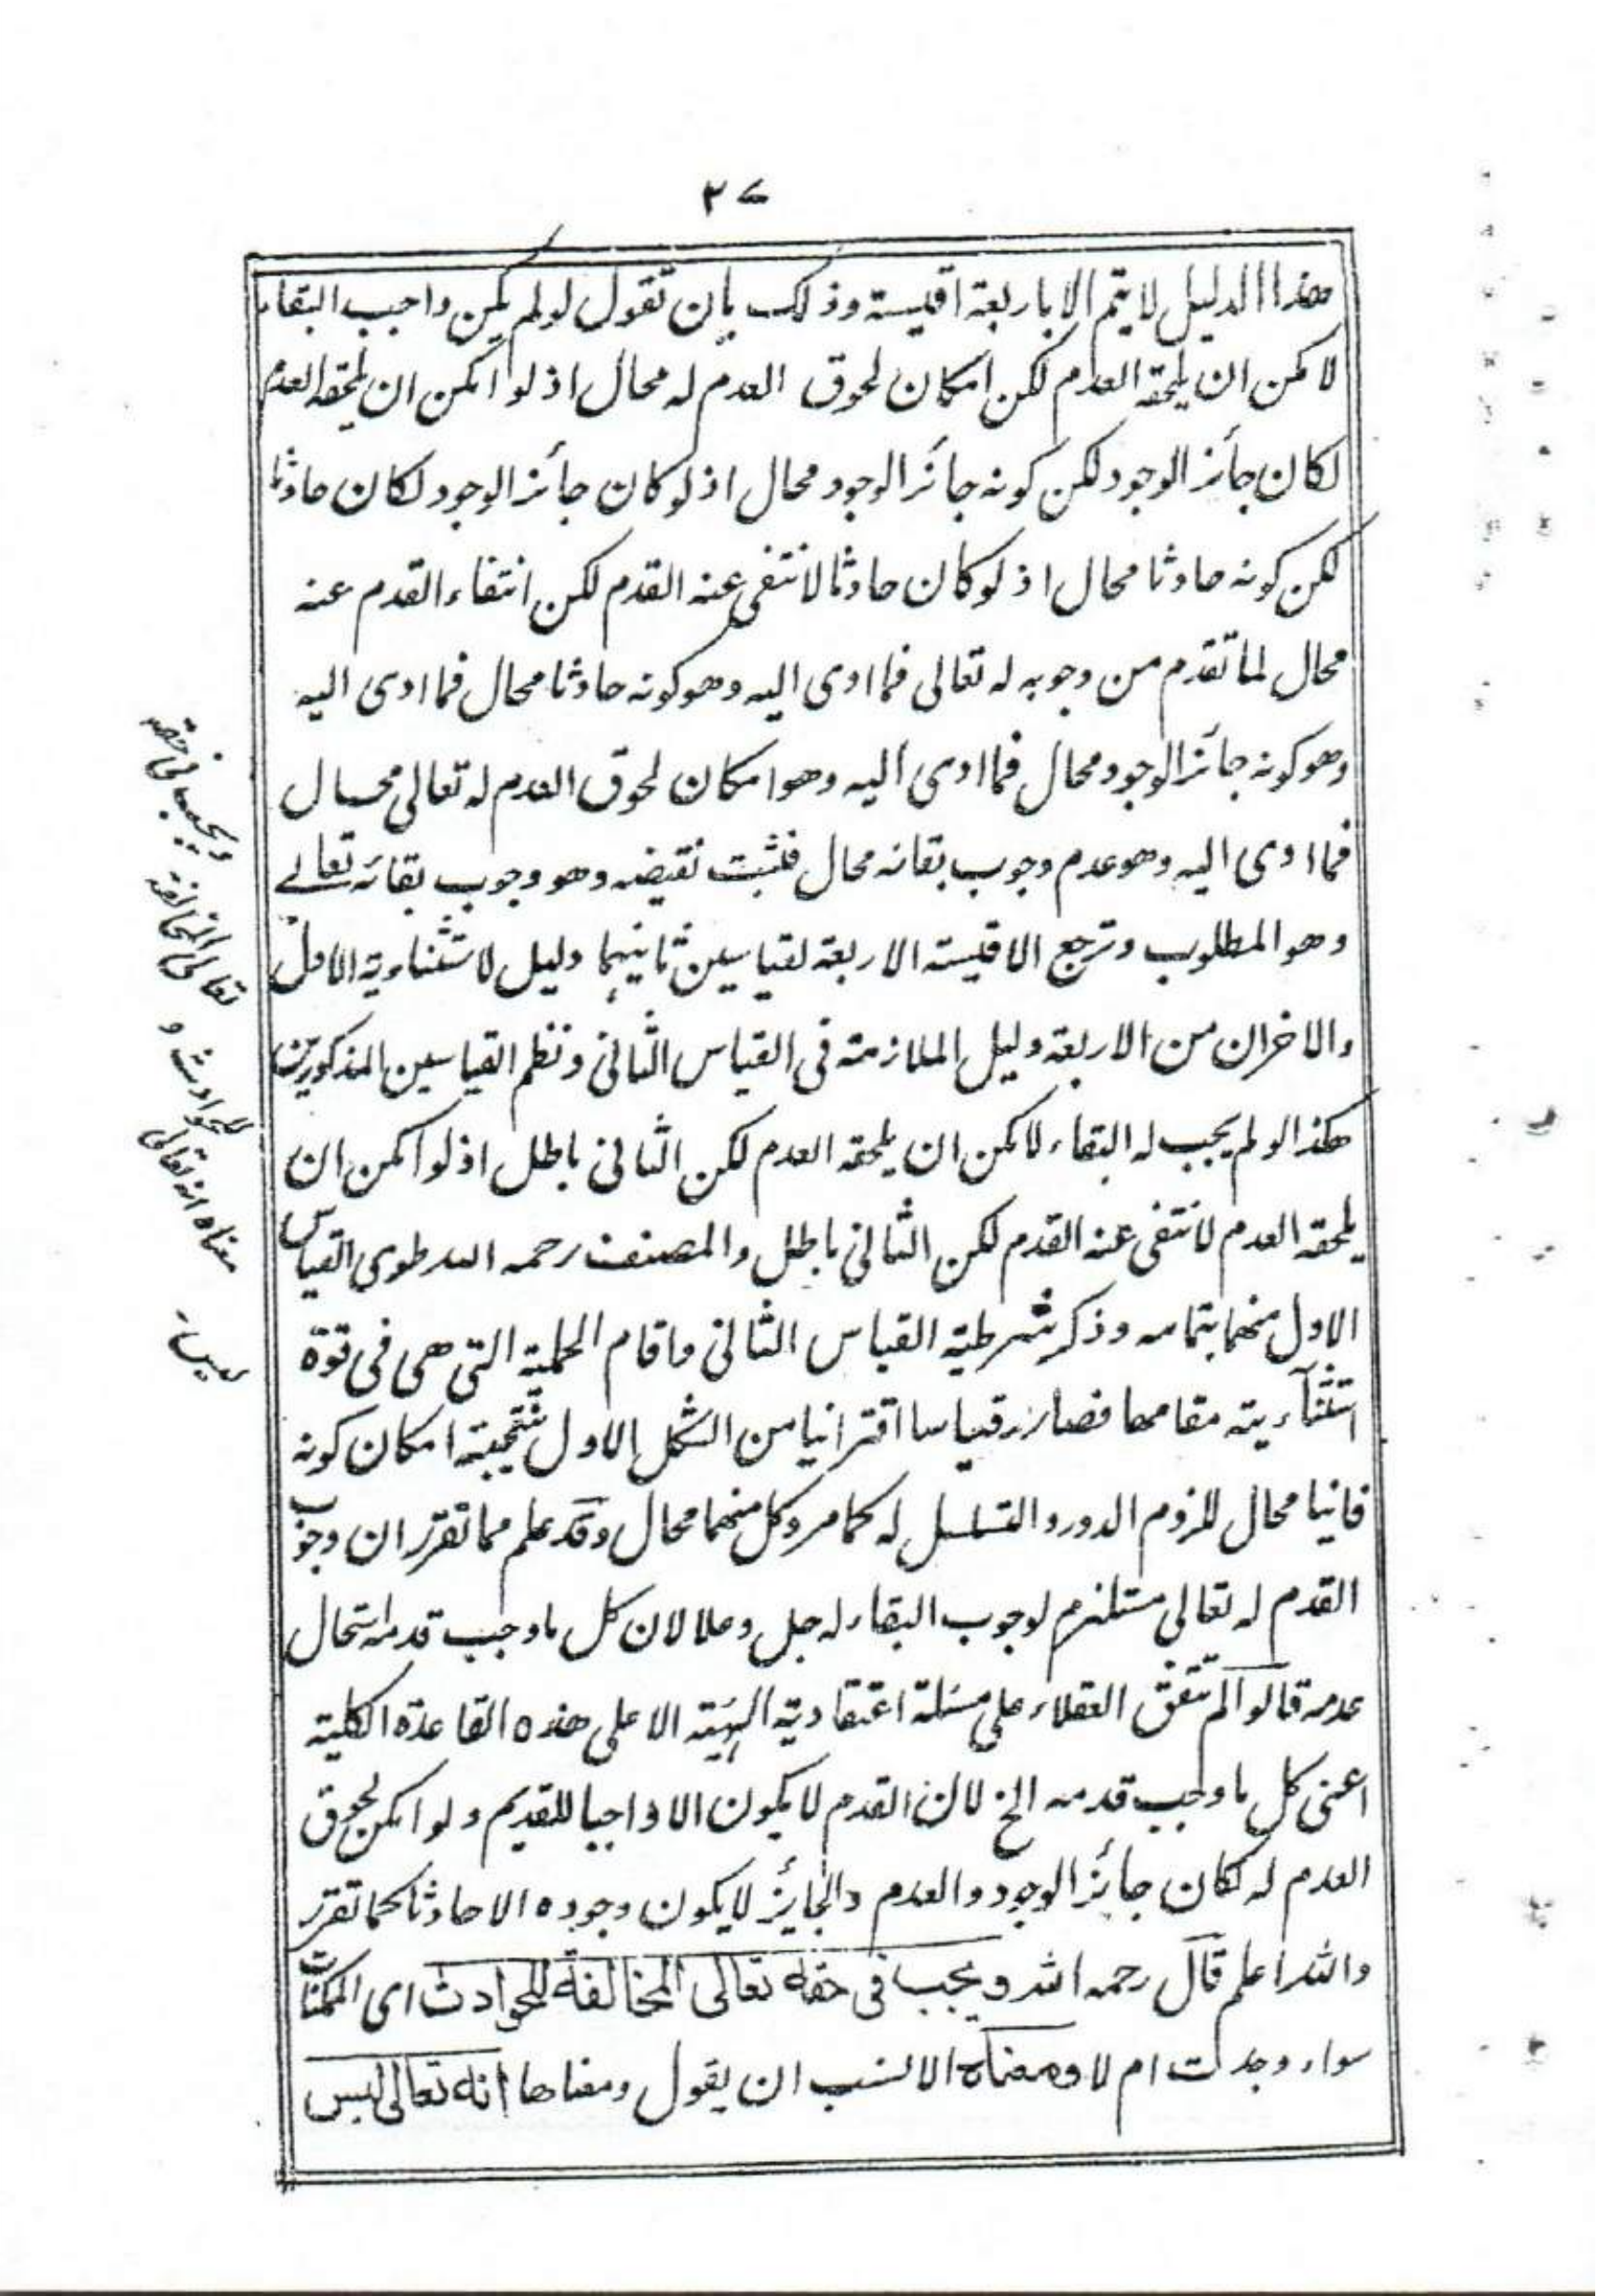 ٣٧
هذا الدليل لا يتم الا باربعة اقيسة وذلك بان تقول لو لم يكن واجب البقاء
لا مكن ان يلحقه العدم لكن امكان لحوق العدم له محال اذ لو امكن ان يلحقه العدم
لكان جائز الوجود لكن كونه جائز الوجود محال اذ لو كان جائز الوجود لكان حادثا
لكن كونه حادثا محال اذ لو كان حادثا لانتفى عنه القدم لكن انتفاء القدم عنه
محال لما تقدم من وجوبه له تعالى فما ادى اليه وهو كونه حادثا محال فما ادى اليه
وهو كونه جائز الوجود محال فما ادى اليه وهو امكان لحوق العدم له تعالى محال
فما ادى اليه وهو عدم وجوب بقائه محال فثبت نقيضه وهو وجوب بقائه تعالى
وهو المطلوب وترجع الاقيسة الاربعة لقياسين ثانيهما دليل لاستثناوية الاول
والاخران من الاربعة دليل الملازمة فى القياس الثانى ونظم القياسين المذكورين
هكذا لو لم يجب له البقاء لامكن ان يلحقه العدم لكن الثانى باطل اذ لو امكن ان
يلحقه العدم لانتفى عنه القدم لكن الثانى باطل والمصنف رحمه الله طوى القياس
الاول منهما بتمامه وذكر شرطية القياس الثانى واقام الحملية التى هى فى قوة
استثنآءيته مقامها فصار قياسا اقترانيا من الشكل الاول نتيجته امكان كونه
فانيا محال للزوم الدور والتسلسل له كما مر وكل منهما محال وقد علم مما تقرر ان وجوب
القدم له تعالى مستلزم لوجوب البقاء له جل وعلا لان كل ما وجب قدمه استحال
عدمه قالوا لم تتفق العقلاء على مسئلة اعتقادية الهية الا على هذه القاعدة الكلية
اعنى كل ما وجب قدمه الخ لان القدم لا يكون الا واجبا للقديم ولو امكن لحوق
العدم له لكان جائز الوجود والعدم والجايز لا يكون وجوده الا حادثا كما تقرر
والله اعلم قال رحمه الله ويجب فى حقه تعالى المخالفة للحوادث اى الممكنات
سواء وجدت ام لا ومعناه الانسب ان يقول ومعناها انه تعالى ليس
ويجب فى حقه
تعالى المخالفة
للحوادث و
معناه انه تعالى
ليس